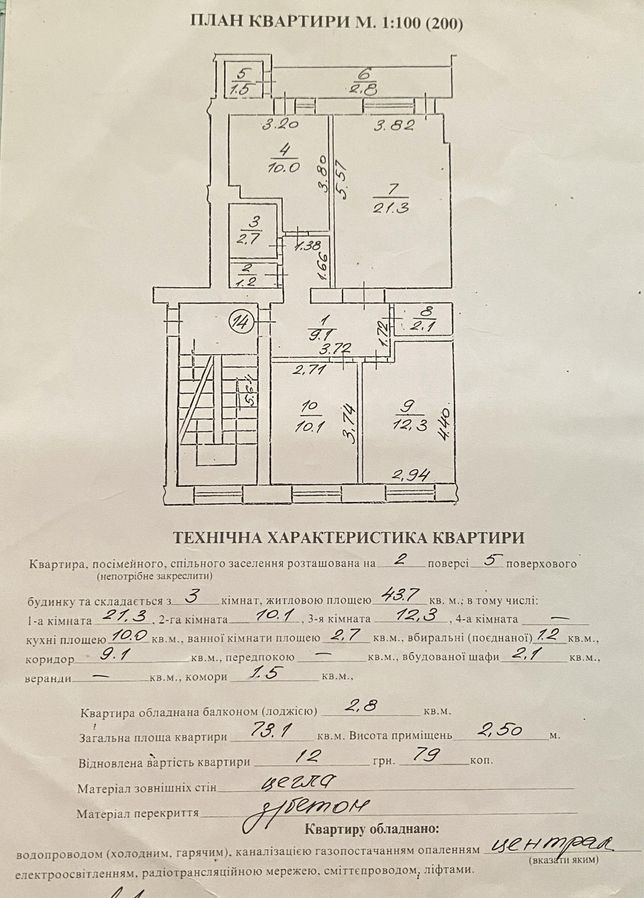 ПЛАН КВАРТИРИ М. 1:100 (200)
5
1.5
6
2.8
3.20
3.82
4
10.0
3.80
5.57
7
21.3
3
2.7
1.38
1.66
2
1.2
14
1
9.1
3.72
1.72
8
2.1
2,71
5.64
10
10.1
3,74
9
12,3
4.40
2,94
ТЕХНІЧНА ХАРАКТЕРИСТИКА КВАРТИРИ
Квартира, посімейного, спільного заселення розташована на 2 поверсі 5 поверхового
(непотрібне закреслити)
будинку та складається з 3 кімнат, житловою площею 43.7 кв. м.; в тому числі:
1-а кімната 21,3, 2-га кімната 10.1, 3-я кімната 12,3, 4-а кімната —
кухні площею 10.0 кв.м., ванної кімнати площею 2,7 кв.м., вбиральні (поєднаної) 1.2 кв.м.,
коридор 9.1 кв.м., передпокою — кв.м., вбудованої шафи 2,1 кв.м.,
веранди — кв.м., комори 1.5 кв.м.,
Квартира обладнана балконом (лоджією) 2,8 кв.м.
Загальна площа квартири 73.1 кв.м. Висота приміщень 2,50 м.
Відновлена вартість квартири 12 грн. 79 коп.
Матеріал зовнішніх стін цегла
Матеріал перекриття з/бетон
Квартиру обладнано:
водопроводом (холодним, гарячим), каналізацією газопостачанням опаленням централ
(вказати яким)
електроосвітленням, радіотрансляційною мережею, сміттєпроводом, ліфтами.